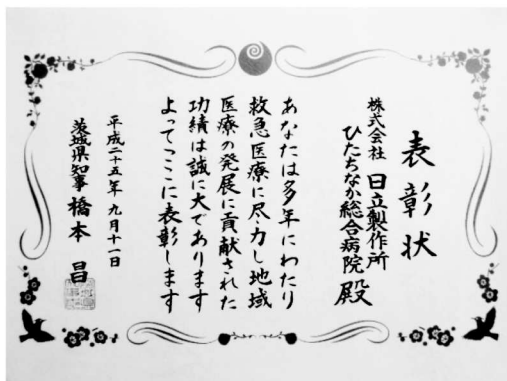 表彰状
株式会社 日立製作所
ひたちなか総合病院 殿
あなたは多年にわたり
救急医療に尽力し地域
医療の発展に貢献された
功績は誠に大であります
よってここに表彰します
平成二十五年 九月十一日
茨城県知事 橋本 昌